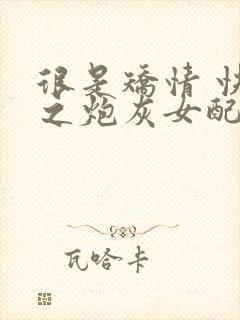 很是矫情 快
之炮灰女配
瓦哈卡